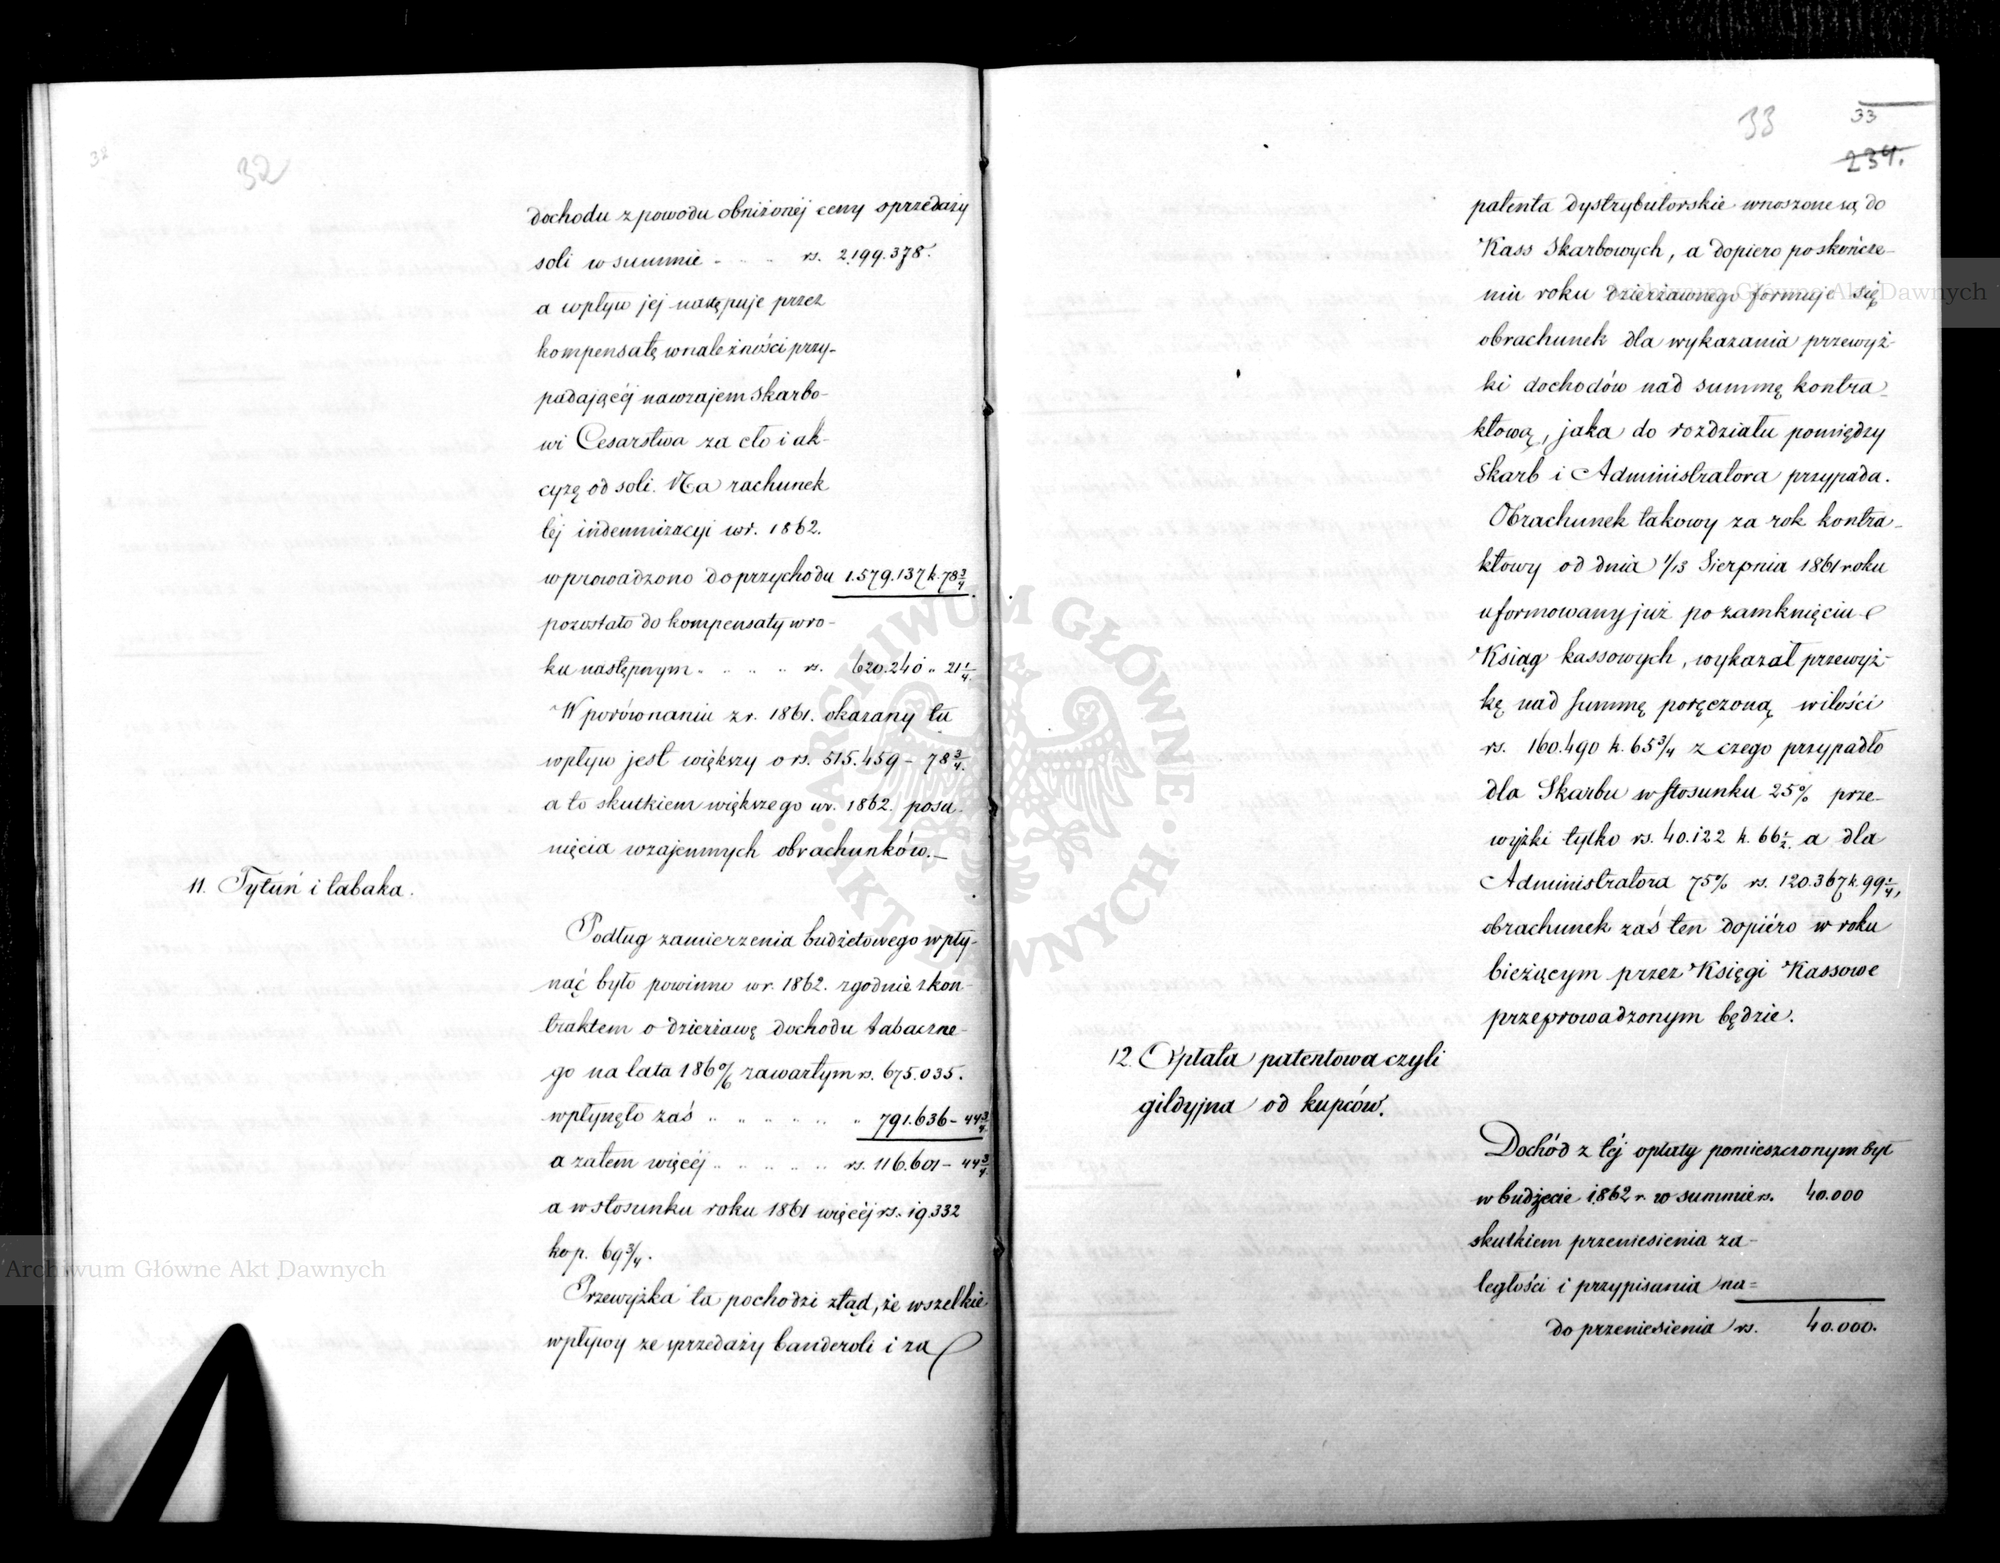 32
32
dochodu z powodu obniżonéj ceny sprzedaży
soli w summie . . . rs. 2.199.378.
a wpływ jej następuje przez
kompensatę w należności przy-
padającéj nawzajem Skarbo-
wi Cesarstwa za cło i ak-
cyzę od soli. Na rachunek
téj indemnizacyi w r. 1862.
wprowadzono do przychodu 1.579.137 k. 78 3/4
pozostało do kompensaty w ro-
ku następnym . . . . rs. 620.240 „ 21 1/4.
W porównaniu z r. 1861. okazany tu
wpływ jest większy o rs. 515.459 – 78 3/4.
a to skutkiem większego w r. 1862. posu-
nięcia wzajemnych obrachunków.—
11. Tytuń i tabaka.
Podług zamierzenia budżetowego wpły-
nąć było powinno w r. 1862. zgodnie z kon-
traktem o dzierżawę dochodu tabaczne-
go na lata 186 0/6 zawartym rs. 675.035.
wpłynęło zaś „ „ „ „ „ „ 791.636 – 44 3/4.
a zatem więcéj „ „ „ „ „ rs. 116.601 – 44 3/4
a w stosunku roku 1861 więcéj rs. 19.332
kop. 69 3/4.
Przewyżka ta pochodzi ztąd, że wszelkie
wpływy ze sprzedaży banderoli i za
33
33
234.
patenta dystrybutorskie wnoszone są do
Kass Skarbowych, a dopiero po skończe-
niu roku dzierżawnego formuje się
obrachunek dla wykazania przewyż-
ki dochodów nad summę kontra-
ktową, jaka do rozdziału pomiędzy
Skarb i Administratora przypada.
Obrachunek takowy za rok kontra-
ktowy od dnia 1/13 Sierpnia 1861 roku
uformowany już po zamknięciu
Ksiąg kassowych, wykazał przewyż-
kę nad summę poręczoną w ilości
rs. 160.490 k. 65 3/4 z czego przypadło
dla Skarbu w stosunku 25% prze-
wyżki tylko rs. 40.122 k. 66 1/2. a dla
Administratora 75% rs. 120.367 k. 99 1/4,
obrachunek zaś ten dopiéro w roku
bieżącym przez Księgi Kassowe
przeprowadzonym będzie.
12. Opłata patentowa czyli
gildyjna od kupców.
Dochód z téj opłaty pomieszczonym był
w budżecie 1862 r. w summie rs. 40.000
skutkiem przeniesienia za-
ległości i przypisania na=
do przeniesienia rs. 40.000.
ARCHIWUM GŁÓWNE · AKT DAWNYCH ·
Archiwum Główne Akt Dawnych
Archiwum Główne Akt Dawnych